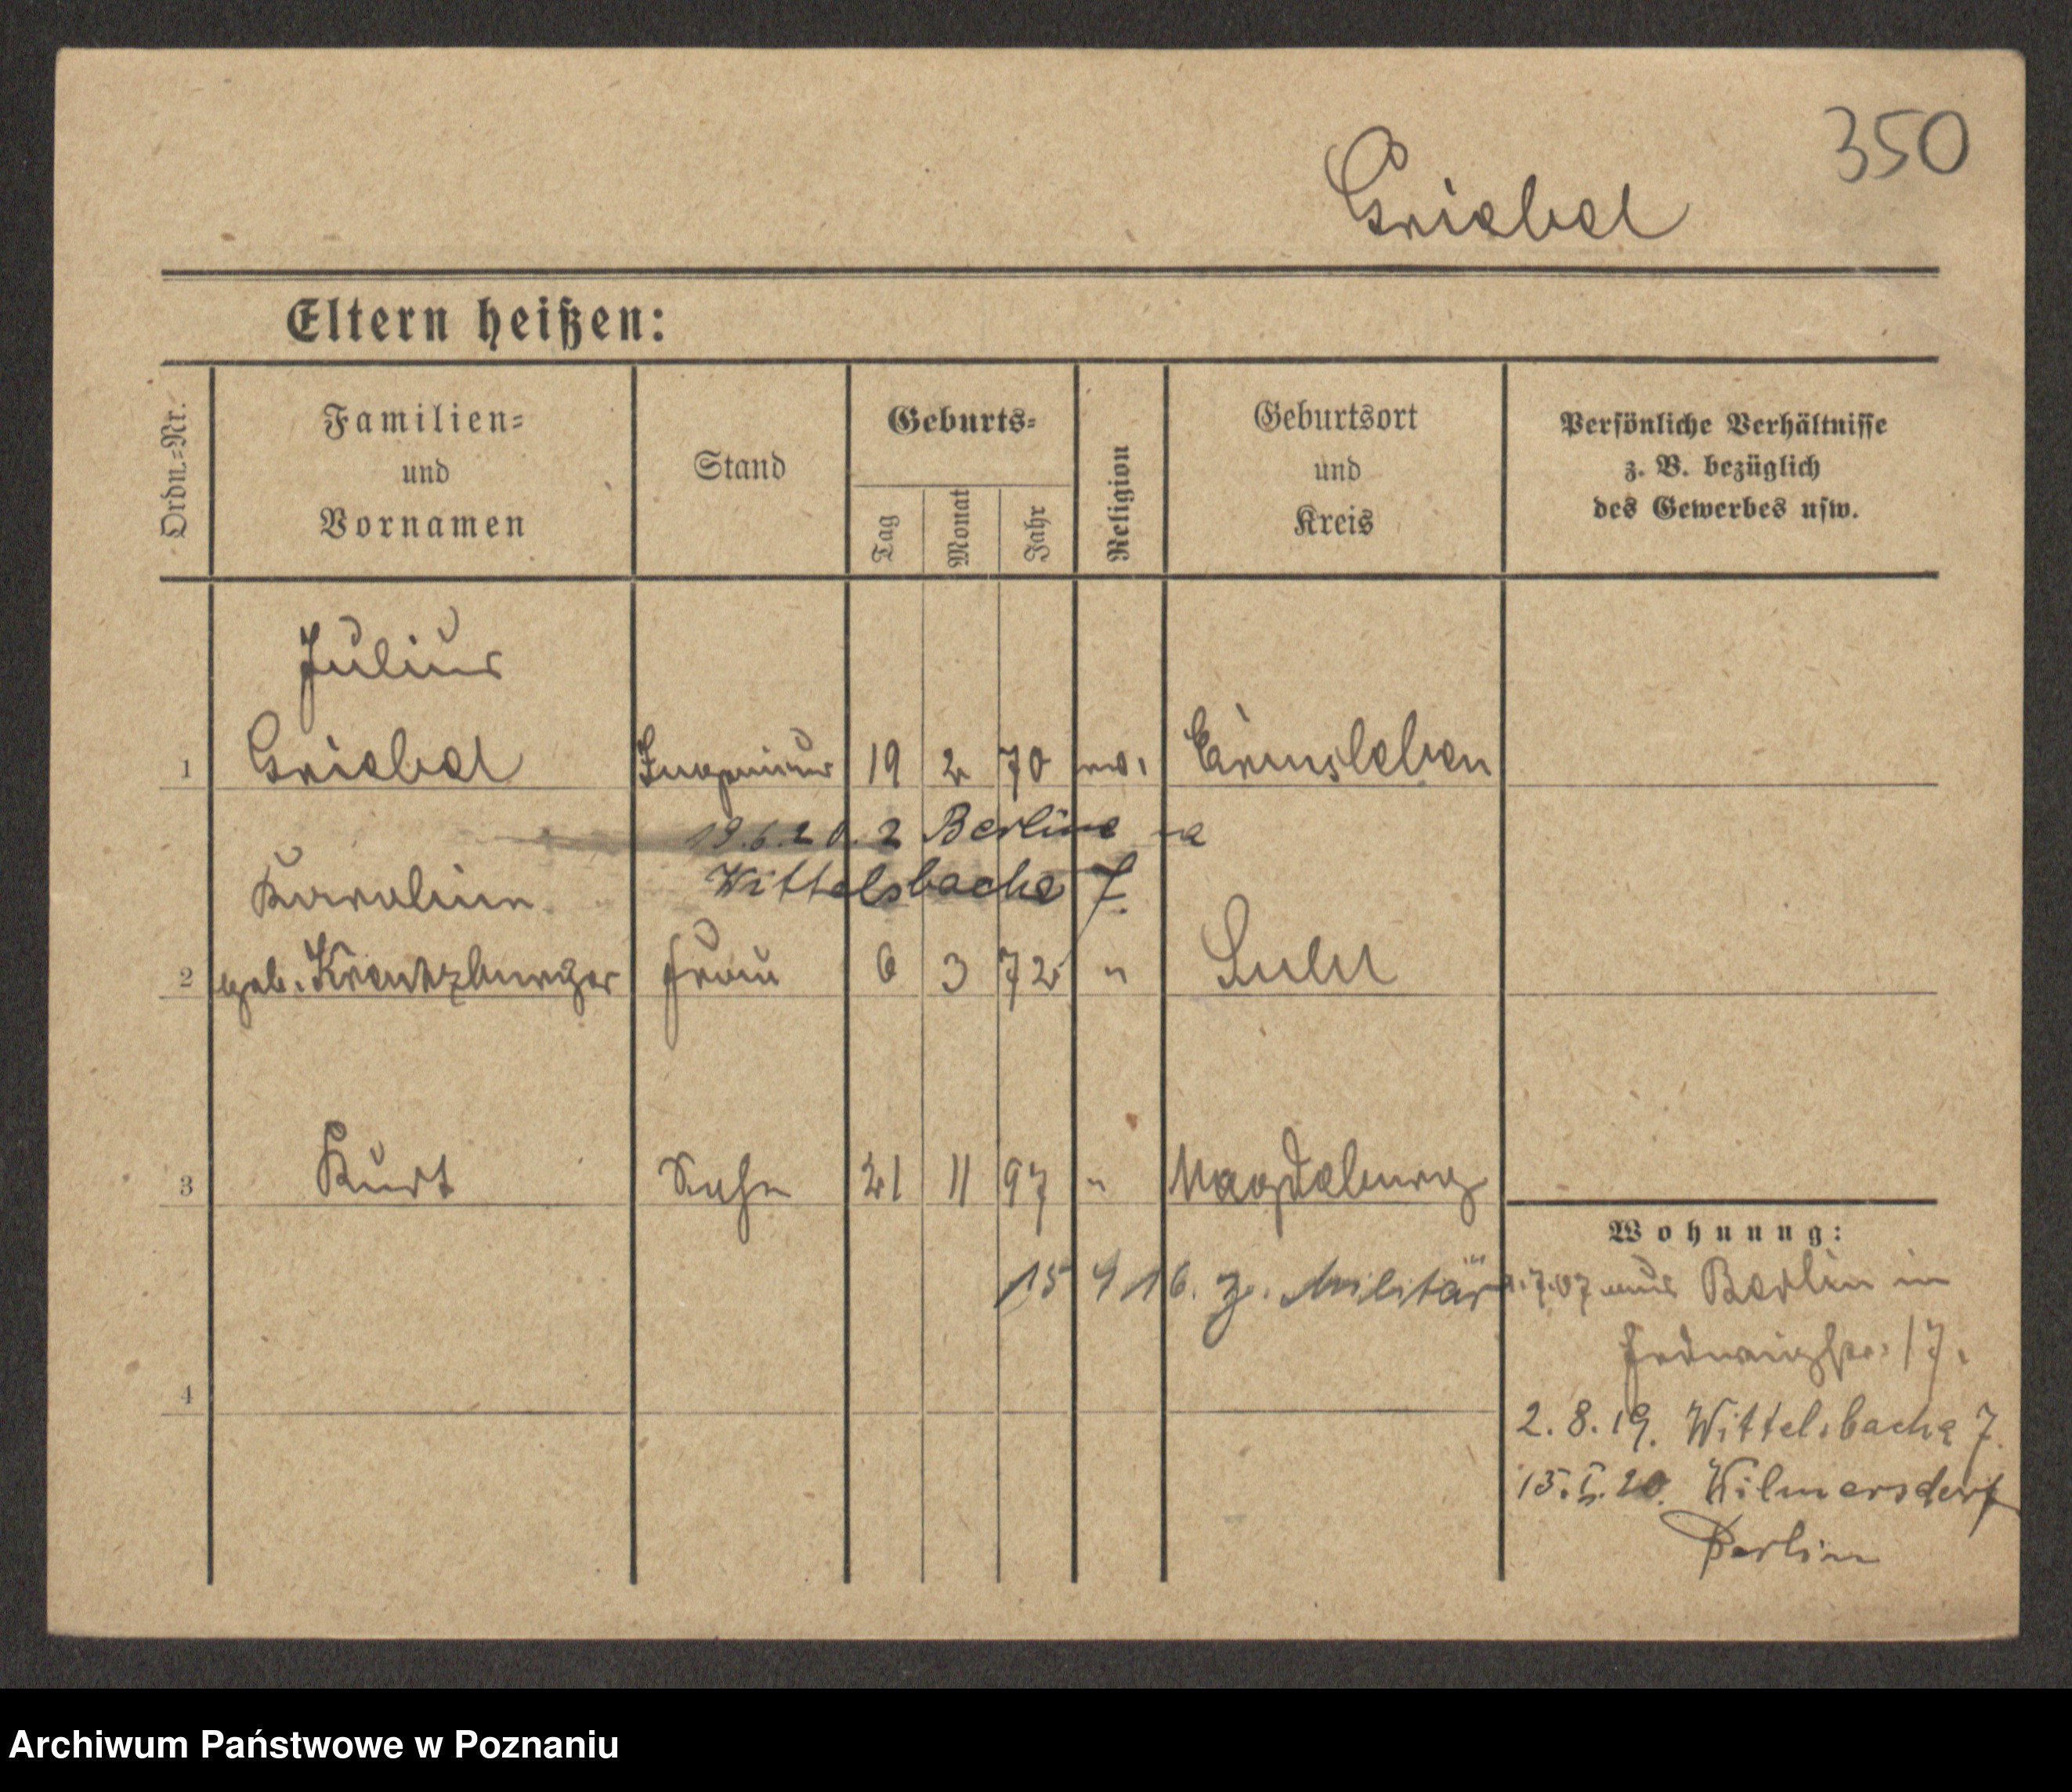 350
Griebel
Eltern heißen:
Ordn.-Nr.
Familien=
und
Vornamen
Stand
Geburts=
Tag
Monat
Jahr
Religion
Geburtsort
und
Kreis
Persönliche Verhältnisse
z. B. bezüglich
des Gewerbes usw.
Julius
1 Griebel Ingenieur 19 2 70 ev. Ermsleben
19.6.20. 2 Berline
Karoline Wittelsbache 7.
2 geb. Kreutzburger Frau 6 3 72 " Suhl
3 Kurt Sohn 21 11 97 " Magdeburg
Wohnung:
15 4 16. z. Militär
7.07 aus Berlin in
Hedwigstr. 17.
4
2.8.19. Wittelsbache 7.
15.I.20. Wilmersdorf
Berlin
Archiwum Państwowe w Poznaniu